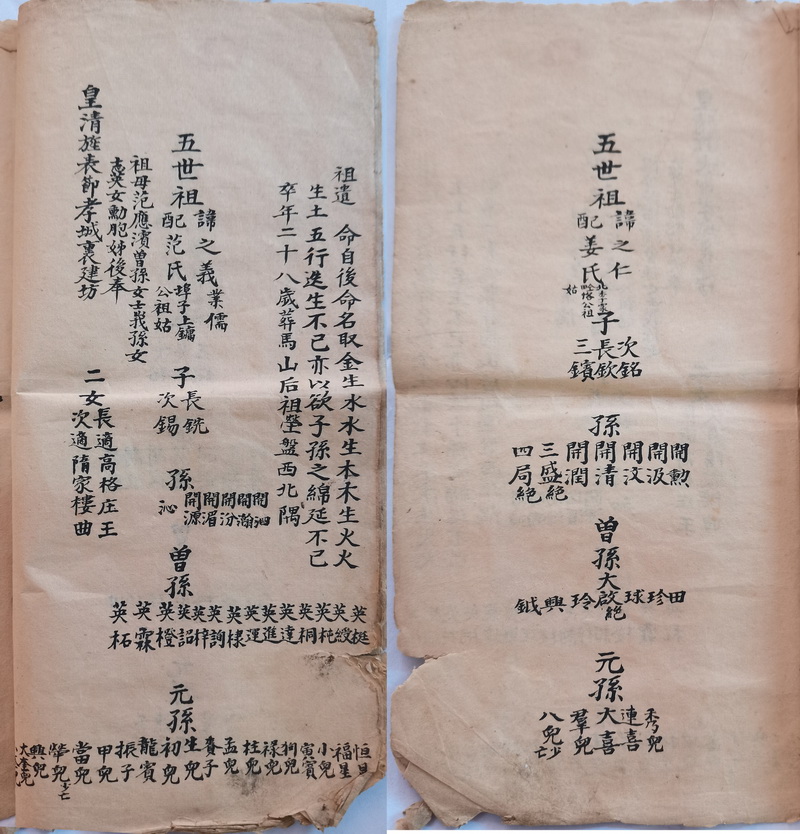 五世祖
諱之仁
配姜氏
姑
子
次銘
長欽
三鑌
孫
開勳
開汲
開汶
開清
開潤
三盛絕
四局絕
曾孫
田
珍
球
大啟絕
玲
興
鉞
元孫
秀兒
連喜
大喜
羣兒
八兒少亡
祖遺 命自後命名取金生水水生木木生火火
生土五行迭生不已亦以欲子孫之綿延不已
卒年二十八歲葬馬山后祖塋盤西北隅
五世祖
諱之義業儒
配范氏埠子上鏞
公祖姑
祖母范應濱曾孫女士峩孫女
志英女勳胞姊後奉
皇清旌表節孝城裏建坊
子
長銑
次錫
二女
長適高格庄王
次適隋家樓曲
孫
開泗
開瀚
開汾
開湄
開源
沁
曾孫
英挺
英綬
英杶
英桐
英達
英進
英運
英棣
英詢
英梓
英詔
英橙
英霖
英柘
元孫
恒日
福星
小兒
寅賓
狗兒
祿兒
柱兒
孟兒
賚子
生兒
初兒
龍賓
振子
甲兒
當兒
犖兒少亡
興兒
大奎兒